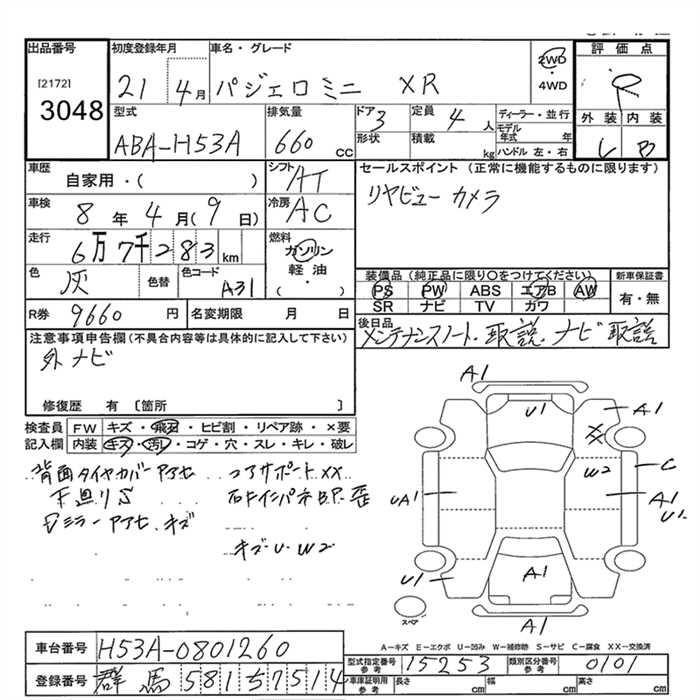 出品番号
[2172]
3048
初度登録年月
21 4月
車名・グレード
パジェロミニ XR
2WD
・
4WD
評価点
R
外装 内装
C B
型式
ABA-H53A
排気量
660 cc
ドア
3
形状
定員
4 人
積載
kg
ディーラー・並行
モデル年式 年
ハンドル 左・右
車歴
自家用・( )
シフト
AT
車検
8年 4月(9日)
冷房
AC
走行
6万7千283km
燃料
ガソリン
軽油
( )
色
灰
色替
色コード
A31
セールスポイント (正常に機能するものに限ります)
リヤビューカメラ
装備品 (純正品に限り○をつけてください)
PS PW ABS エアB AW
SR ナビ TV カワ
新車保証書
有・無
R券 9660 円
名変期限 月 日
後日品
メンテナンスノート・取説・ナビ取説
注意事項申告欄(不具合内容等は具体的に記入して下さい)
外ナビ
修復歴 有〔箇所 〕
検査員記入欄
FW キズ・飛石・ヒビ割・リペア跡・×要
内装 キズ・汚レ・コゲ・穴・スレ・キレ・破レ
背面タイヤカバーアセ
下廻りS
ミラーアセ、キズ
コアサポートXX
歪
キズ・U・W2
A1
U1
A1
XX
W2
C
UA1
A1
U1
U1
A1
A1
スペア
A－キズ E－エクボ U－凹み W－補修跡 S－サビ C－腐食 XX－交換済
車台番号 H53A-0801260
登録番号 群馬 581 5 7514
型式指定番号 参考 15253
類別区分番号 参考 0101
車庫証明用 参考
長さ cm
幅 cm
高さ cm